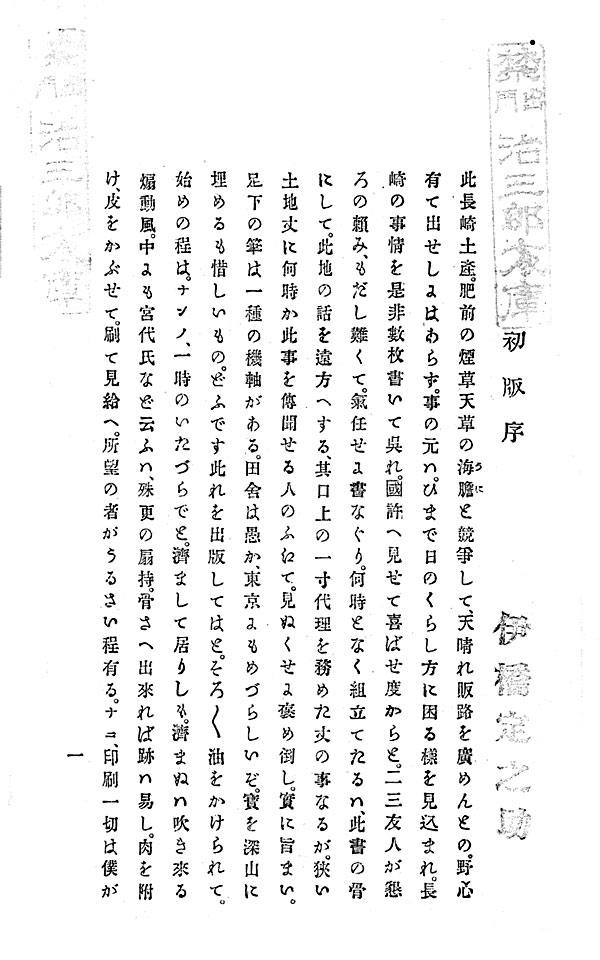 初版序
此長崎土產。肥前の煙草天草の海膽と競爭して、天晴れ販路を廣めんとの。野心
うに
有て出せしにはあらず。事の元ハ。ひまで日のくらし方に困る樣を見込まれ。長
崎の事情を是非數枚書いて吳れ。國許へ見せて喜ばせ度からと。二三友人が懇
ろの賴み、もだし難くて。氣任せに書なぐり。何時となく組立てたるハ此書の骨
にして。此地の話を遠方へする、其口上の一寸代理を務めた丈の事なるが。狹い
土地丈に何時か此事を傳聞せる人のふ𛂞て。見ぬくせに褒め倒し。實に旨まい。
足下の筆は一種の機軸がある。田舍は愚か、東京にもめづらしいぞ。寶を深山に
埋めるも惜しいもの。どふです此れを出版してはと。そろ〱油をかけられて。
始めの程は。ナンノ、一時のいたづらでと。濟まして居りしも。濟まぬハ吹き來る
煽動風。中にも宮代氏など云ふハ、殊更の扇持。骨さへ出來れば跡ハ易し。肉を附
け、皮をかぶせて。刷て見給へ。所望の者がうるさい程有る。ナニ、印刷一切は僕が
一
治三郎文庫
伊橋定之助